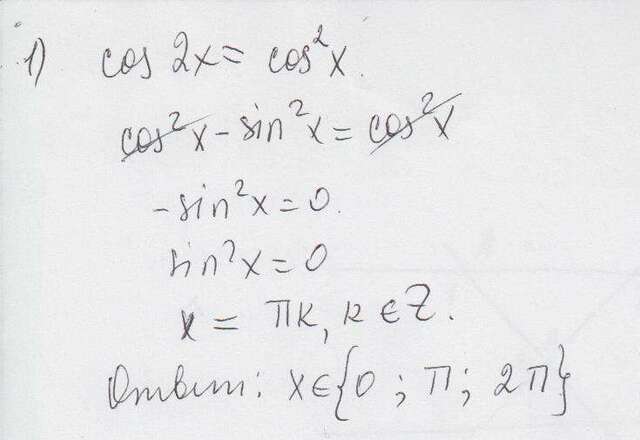 1) cos 2x = cos²x.
cos²x - sin²x = cos²x
-sin²x = 0.
sin²x = 0
x = πk, k ∈ Z.
Ответ: x ∈ {0 ; π ; 2π}